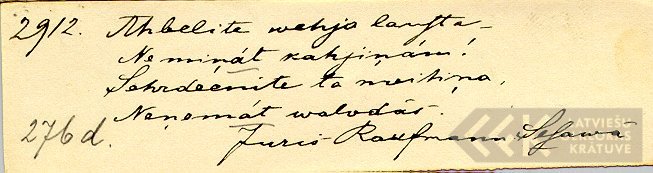 2912. Ahbelite wehja lausta –
Neminát kahjiņám!
Sehrdeenite ta meitiņa,
Neņemát walodás.
276 d.
Juris Kaufmann Lesawā
LATVIEŠU
KRĀTUVE